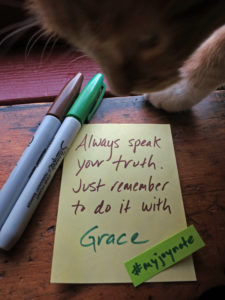 Always speak
your truth.
Just remember
to do it with
Grace
#myjoynote
Sharpie